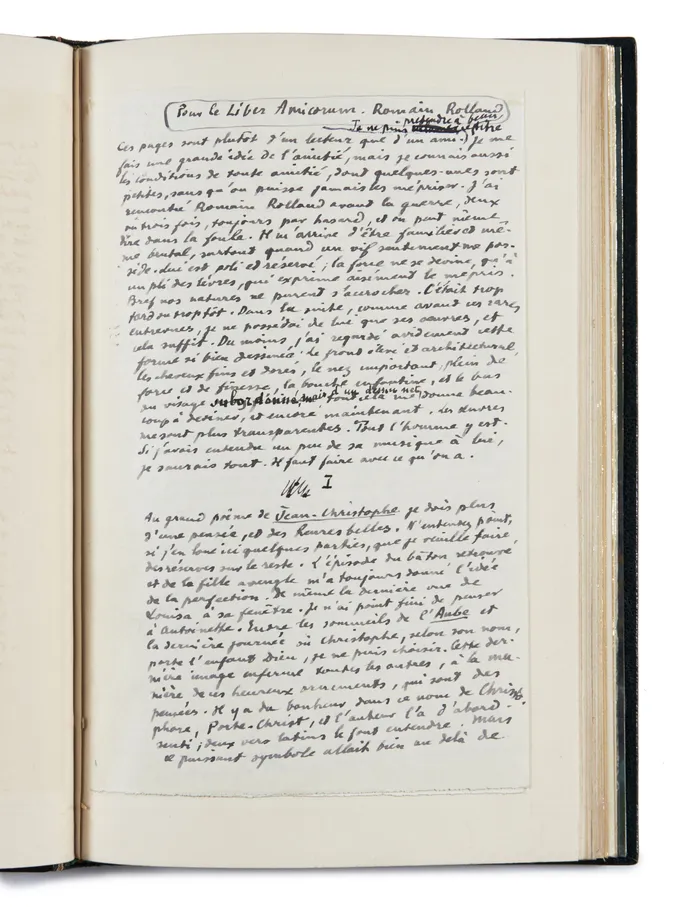 Pour le Liber Amicorum. Romain Rolland
Je ne puis prétendre à beau titre
Ces pages sont plutôt d'un lecteur que d'un ami. Je me
fais une grande idée de l'amitié, mais je connais aussi
les conditions de toute amitié, dont quelques-unes sont
petites, sans qu'on puisse jamais les mépriser. J'ai
rencontré Romain Rolland avant la guerre, deux
ou trois fois, toujours par hasard, et on peut même
dire dans la foule. Il m'arrive d'être familier et mê-
me brutal, surtout quand un vif sentiment me pos-
sède. Lui est poli et réservé; la force ne se devine, qu'à
un pli des lèvres, qui exprime aisément le mépris.
Bref nos natures ne purent s'accrocher. C'était trop
tard ou trop tôt. Dans la suite, comme avant ces rares
entrevues, je ne possédai de lui que ses œuvres, et
cela suffit. Du moins, j'ai regardé avidement cette
forme si bien dessinée: le front élevé et architectural,
les cheveux fins et dorés, le nez important, plein de
force et de finesse, la bouche enfantine, et le bas
du visage subordonné, mais d'un dessin net. Tout cela me donne beau-
coup à deviner, et encore maintenant. Les œuvres
me sont plus transparentes. Tout l'homme y est.
Si j'avais entendu un peu de sa musique à lui,
je saurais tout. Il faut faire avec ce qu'on a.
I
Au grand poème de Jean-Christophe je dois plus
d'une pensée, et des heures belles. N'entendez point,
si j'en loue ici quelques parties, que je veuille faire
des réserves sur le reste. L'épisode du bâton retrouvé
et de la fille aveugle m'a toujours donné l'idée
de la perfection. De même la dernière vue de
Louisa à sa fenêtre. Je n'ai point fini de penser
à Antoinette. Entre les sommeils de l'Aube et
la dernière journée où Christophe, selon son nom,
porte l'enfant Dieu, je ne puis choisir. Cette der-
nière image enferme toutes les autres, à la ma-
nière de ces heureux ornements, qui sont des
pensées. Il y a du bonheur dans ce nom de Christo-
phore, Porte-Christ, et l'auteur l'a d'abord
senti; deux vers latins le font entendre. Mais
ce puissant symbole allait bien au delà de